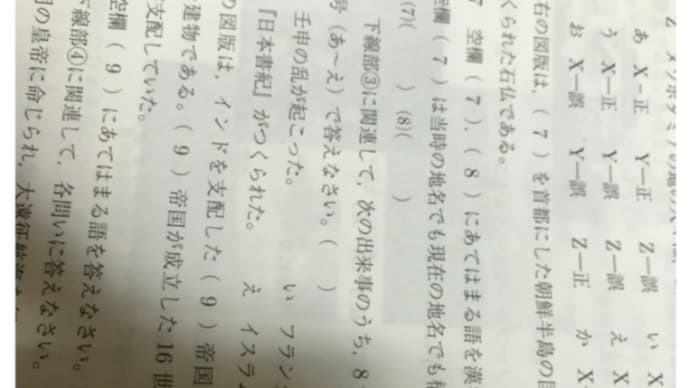 Z メソポタミアの
あ X―正 Y―正 Z―誤 い X
う X―正 Y―誤 Z―誤 え X
お X―誤 Y―誤 Z―正 か X
右の図版は，（ 7 ）を首都にした朝鮮半島の
くられた石仏である。
7 空欄（ 7 ），（ 8 ）にあてはまる語を漢
空欄（ 7 ）は当時の地名でも現在の地名でも
(7)( ) (8)( )
下線部③に関連して，次の出来事のうち，8
号（あ～え）で答えなさい。（ ）
壬申の乱が起こった。 い フラン
『日本書紀』がつくられた。 え イスラ
の図版は，インドを支配した（ 9 ）帝国
建物である。（ 9 ）帝国が成立した16世
支配していた。
空欄（ 9 ）にあてはまる語を答えなさい。
下線部④に関連して，各問いに答えなさい。
明の皇帝に命じられ，大遠征